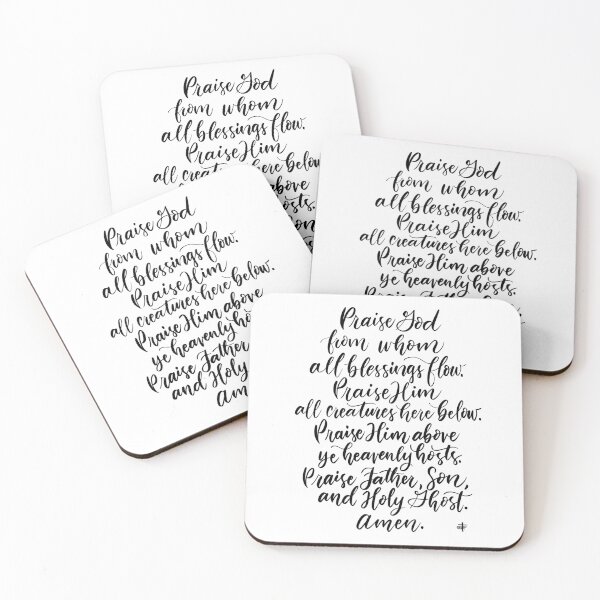 Praise God
from whom
all blessings flow.
Praise Him
all creatures here below
above
hosts.
Praise God
from whom
all blessings flow.
Praise Him
all creatures here below.
Praise Him above
ye heavenly hosts.
Praise God
from whom
all blessings flow.
Praise Him
all creatures here below.
Praise Him above
ye heavenly
Praise Father
and Holy
Praise God
from whom
all blessings flow.
Praise Him
all creatures here below.
Praise Him above
ye heavenly hosts.
Praise Father, Son,
and Holy Ghost.
Amen.